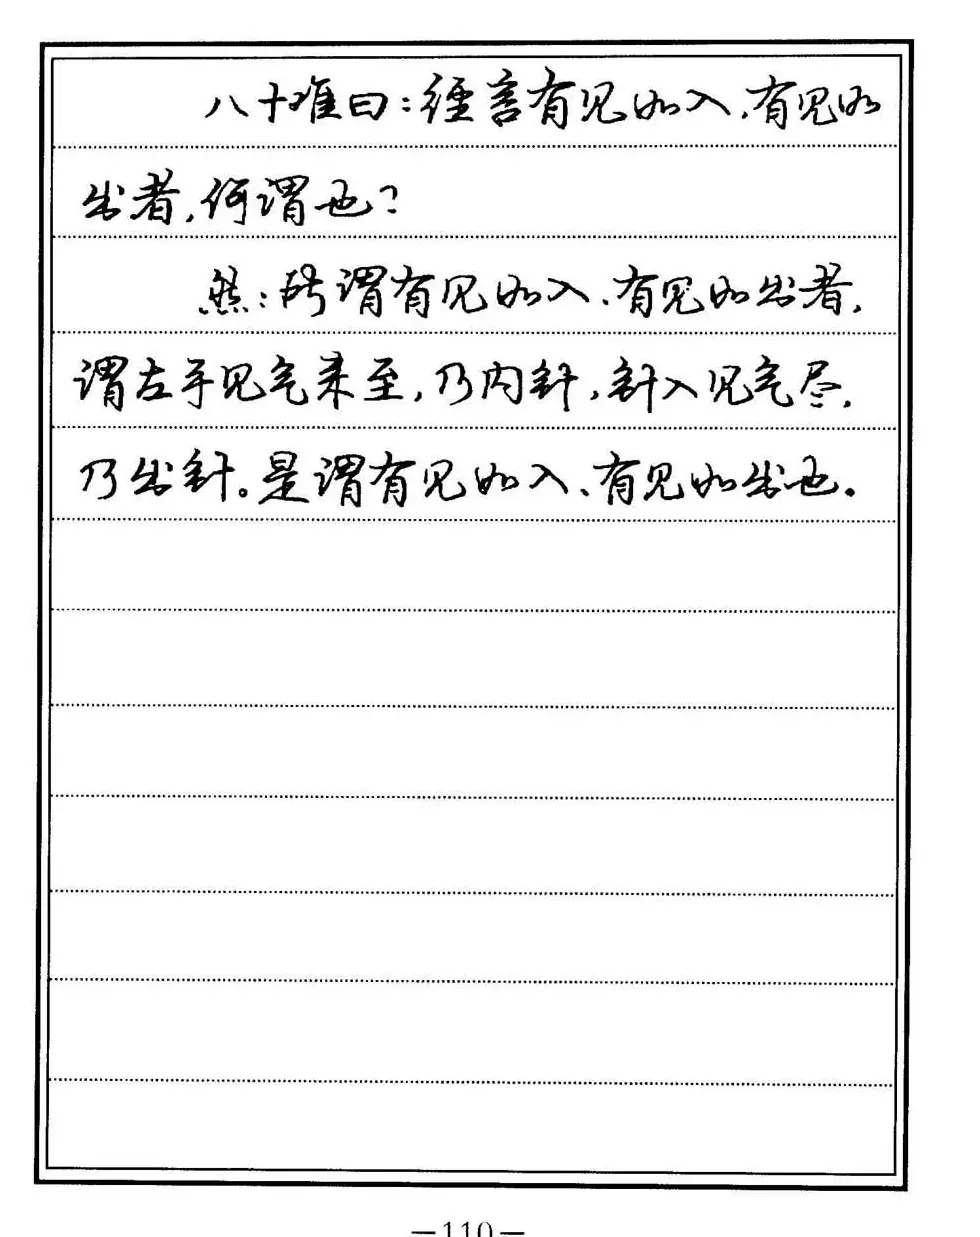 八十难曰:经言有见如入、有见如
出者,何谓也?
然:所谓有见如入、有见如出者,
谓左手见气来至,乃内针,针入见气尽,
乃出针。是谓有见如入、有见如出也。
—110—